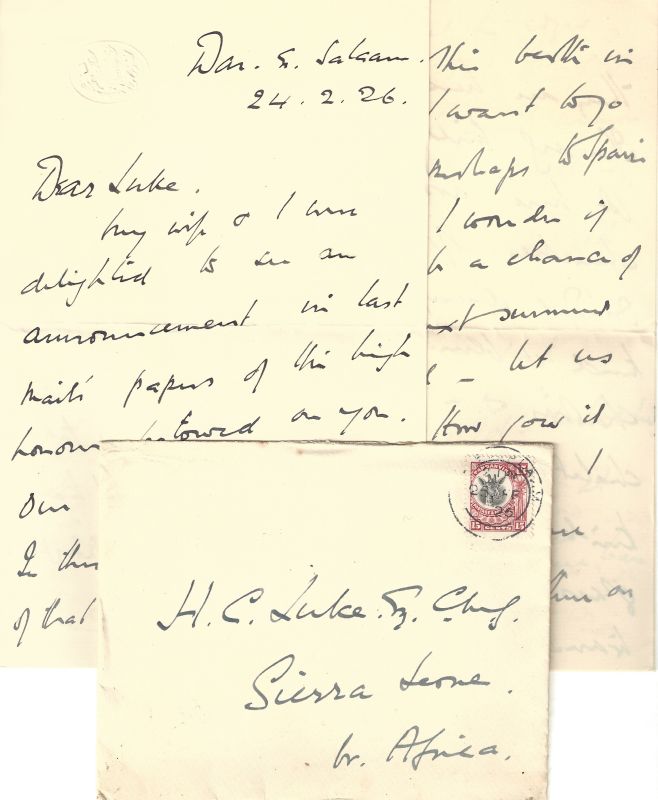 Dar. Es. Salaam.
24. 2. 26.
Dear Luke.
My wife & I were
delighted to see an
announcement in last
mail's papers of the high
honour bestowed on you.
Our
In this
of that
this berth in
I want to go
perhaps to Spain
I wonder if
be a chance of
next summer
– let us
How goes it
I
on
H. C. Luke. Esq. C.M.G.
Sierra Leone.
W. Africa.
15